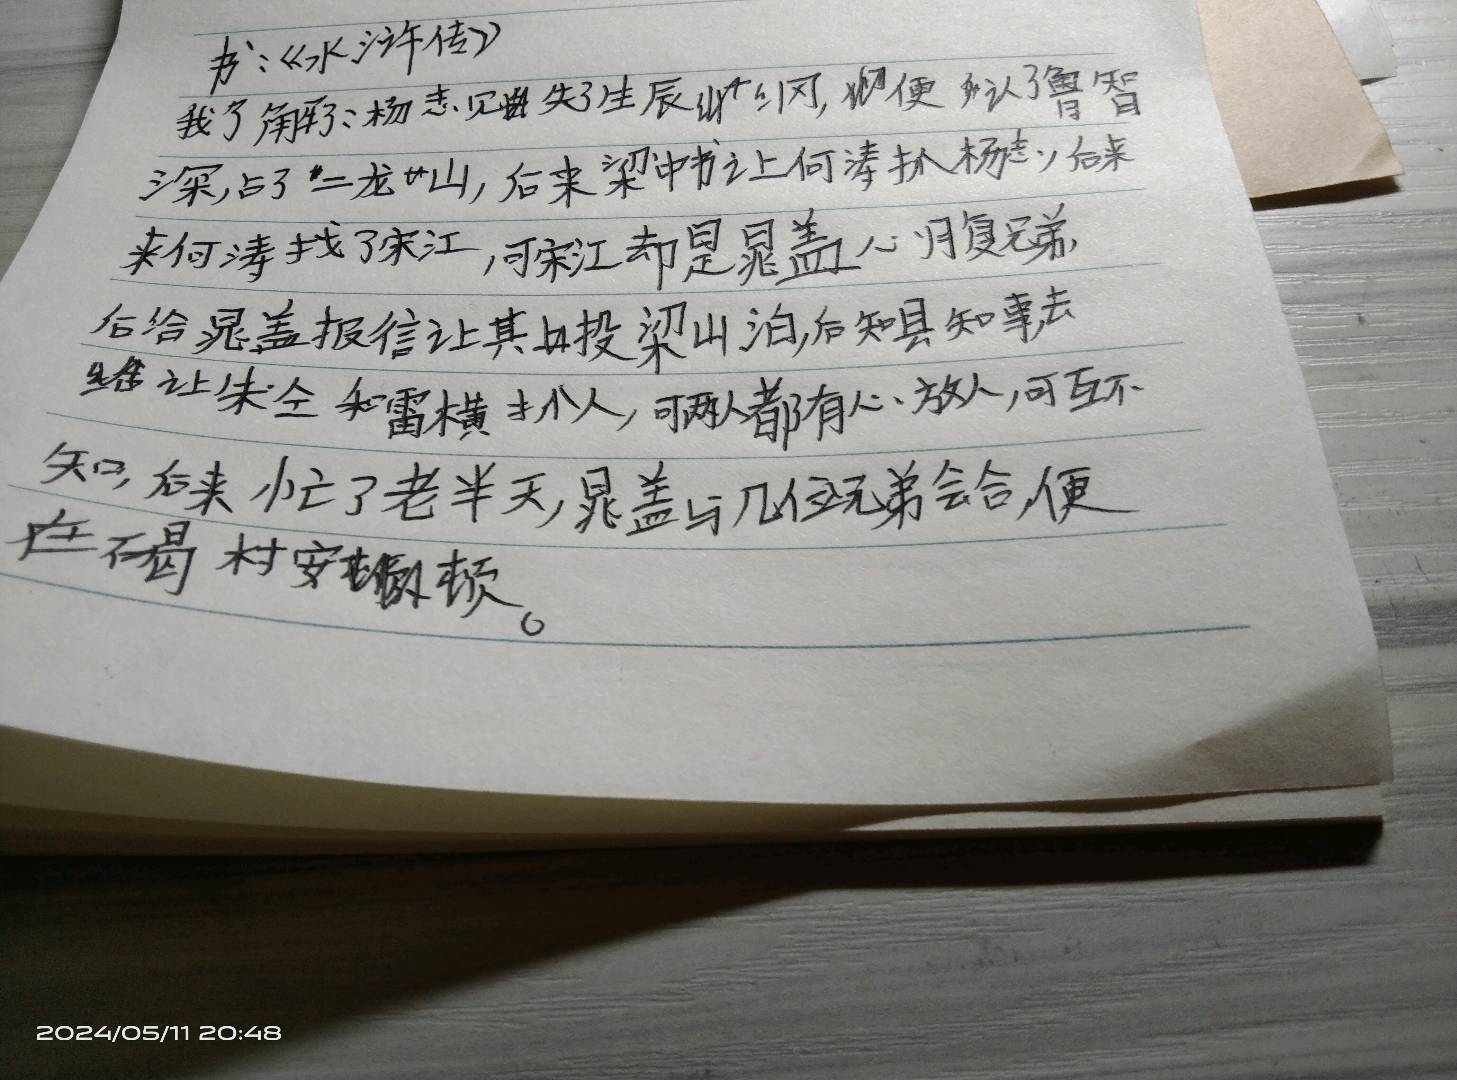 书：《水浒传》
我了解了：杨志见失了生辰纲，便认了鲁智
深，占了“二龙”山，后来梁中书让何涛抓杨志，后来
来何涛找了宋江，可宋江却是晁盖心腹兄弟，
后给晁盖报信让其投梁山泊，后知县知事，去
让朱仝和雷横抓人，可两人都有心放人，可互不
知，后来忙了老半天，晁盖与几位兄弟会合，便
在石碣村安顿。
2024/05/11 20:48